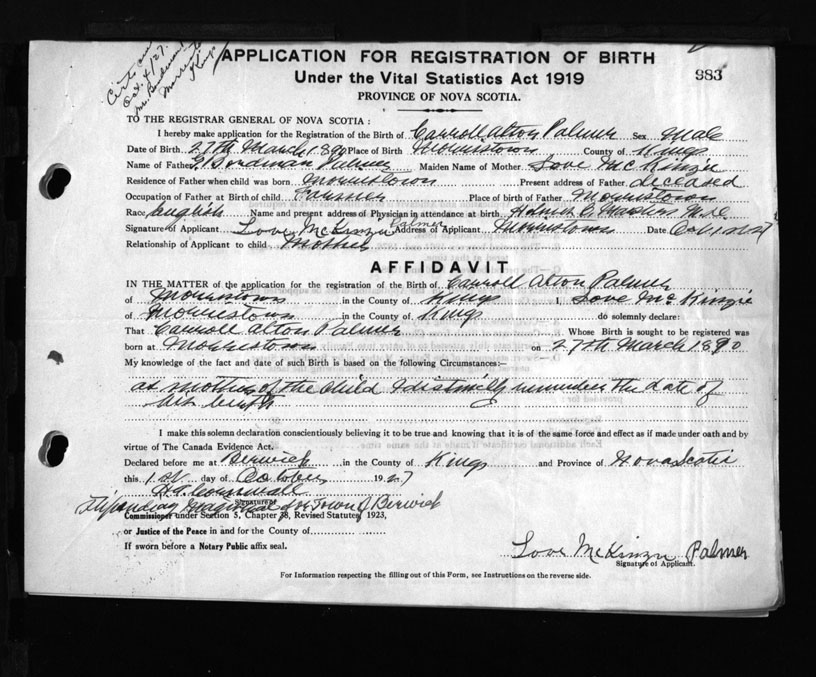 Oct. 4/27.
APPLICATION FOR REGISTRATION OF BIRTH
Under the Vital Statistics Act 1919
983
PROVINCE OF NOVA SCOTIA.
TO THE REGISTRAR GENERAL OF NOVA SCOTIA :
I hereby make application for the Registration of the Birth of Carroll Alton Palmer Sex Male
Date of Birth 27th March 1890 Place of Birth Morristown County of Kings
Name of Father Palmer Maiden Name of Mother Love McKinzie
Residence of Father when child was born Morristown Present address of Father deceased
Occupation of Father at Birth of child Farmer Place of birth of Father Morristown
Race English Name and present address of Physician in attendance at birth
Signature of Applicant Love McKinzie Palmer Address of Applicant Morristown Date Oct 1st 27
Relationship of Applicant to child Mother
AFFIDAVIT
IN THE MATTER of the application for the registration of the Birth of Carroll Alton Palmer
of Morristown in the County of Kings I, Love McKinzie
of Morristown in the County of Kings do solemnly declare:
That Carroll Alton Palmer Whose Birth is sought to be registered was
born at Morristown on 27th March 1890
My knowledge of the fact and date of such Birth is based on the following Circumstances:—
as mother of the child I distinctly remember the date of
his birth
I make this solemn declaration conscientiously believing it to be true and knowing that it is of the same force and effect as if made under oath and by
virtue of The Canada Evidence Act.
Declared before me at Berwick in the County of Kings and Province of Nova Scotia
this 1st day of October 1927
Signature of
Stipendiary Magistrate for Town of Berwick
Commissioner under Section 5, Chapter 38, Revised Statutes, 1923,
or Justice of the Peace in and for the County of
If sworn before a Notary Public affix seal.
Love McKinzie Palmer
Signature of Applicant.
For Information respecting the filling out of this Form, see Instructions on the reverse side.